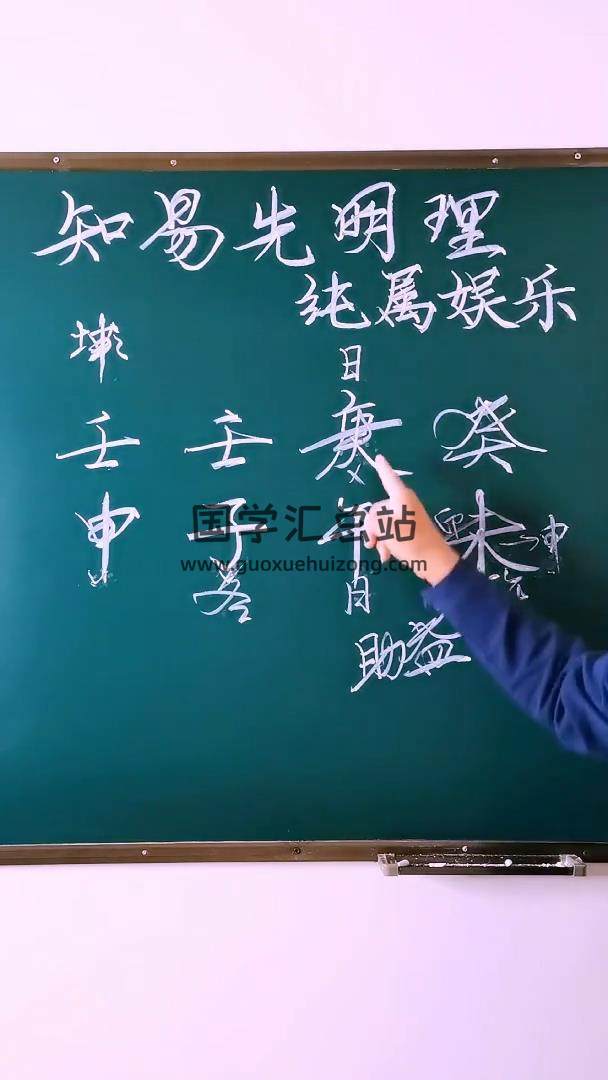 知易先明理
纯属娱乐
坤
日
壬 壬 庚 癸
国学汇总站
www.guoxuehuizong.com
申 子 午 卯 未 申
冬 日
助益